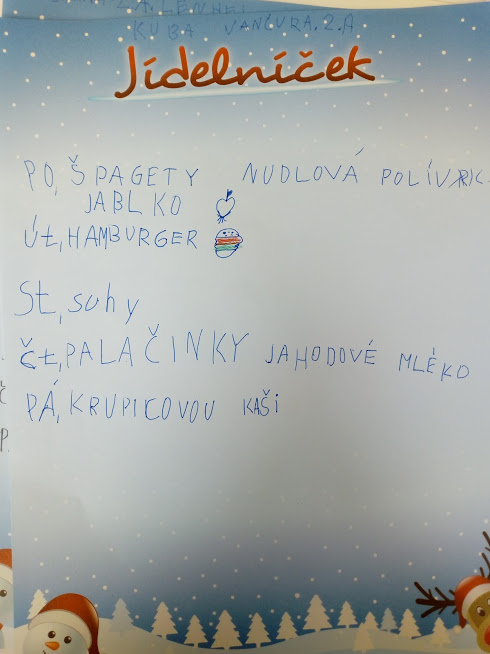 KUBA VANČURA.2.A
Jídelníček
PO, ŠPAGETY NUDLOVÁ
JABLKO
ÚT, HAMBURGER
St, suhy
ČT, PALAČINKY JAHODOVÉ MLÉKO
PÁ, KRUPICOVOU KAŠI